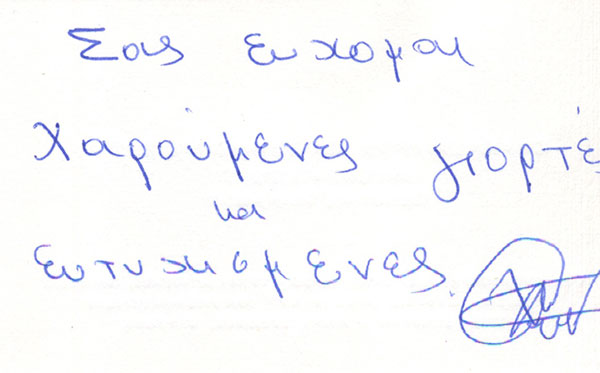 Σας ευχομαι
Χαρούμενες γιορτέ
και
ευτυχισμενες.